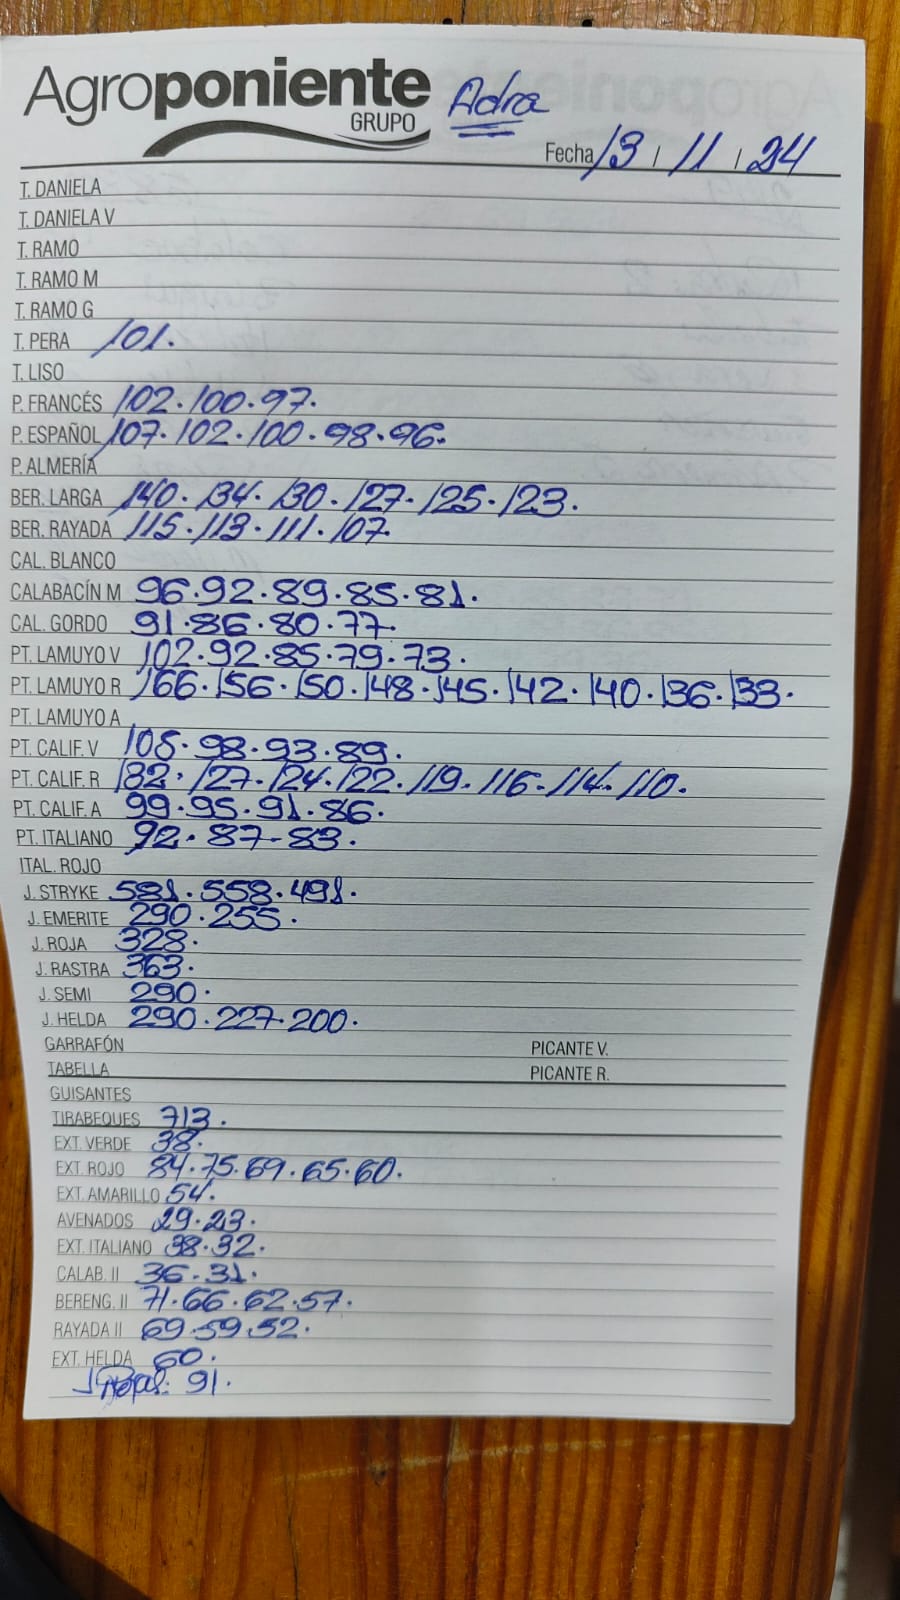 Agroponiente
GRUPO
Adra
Fecha 13 / 11 / 24
T. DANELA
T. DANIELA V
T. RAMO
T. RAMO M
T. RAMO G
T. PERA 101.
T. LISO
P. FRANCÉS 102.100.97.
P. ESPAÑOL 107.102.100.98.96.
P. ALMERÍA
BER. LARGA 140.134.130.127.125.123.
BER. RAYADA 115.113.111.107.
CAL. BLANCO
CALABACÍN M 96.92.89.85.81.
CAL. GORDO 91.86.80.77.
PT. LAMUYO V 102.92.85.79.73.
PT. LAMUYO R 166.156.150.148.145.142.140.136.133.
PT. LAMUYO A
PT. CALIF. V 105.98.93.89.
PT. CALIF. R 132.127.124.122.119.116.114.110.
PT. CALIF. A 99.95.91.86.
PT. ITALIANO 92.87-83.
ITAL. ROJO
J. STRYKE 581.558.491.
J. EMERITE 290.255.
J. ROJA 328.
J. RASTRA 363.
J. SEMI 290.
J. HELDA 290.227.200.
GARRAFÓN PICANTE V.
TABELLA PICANTE R.
GUISANTES
TIRABEQUES 713.
EXT. VERDE 38.
EXT. ROJO 84.75.69.65.60.
EXT. AMARILLO 54.
AVENADOS 29.23.
EXT. ITALIANO 38.32.
CALAB. II 36.31.
BERENG. II 71.66.62.57.
RAYADA II 69.59.52.
EXT. HELDA 60.
91.